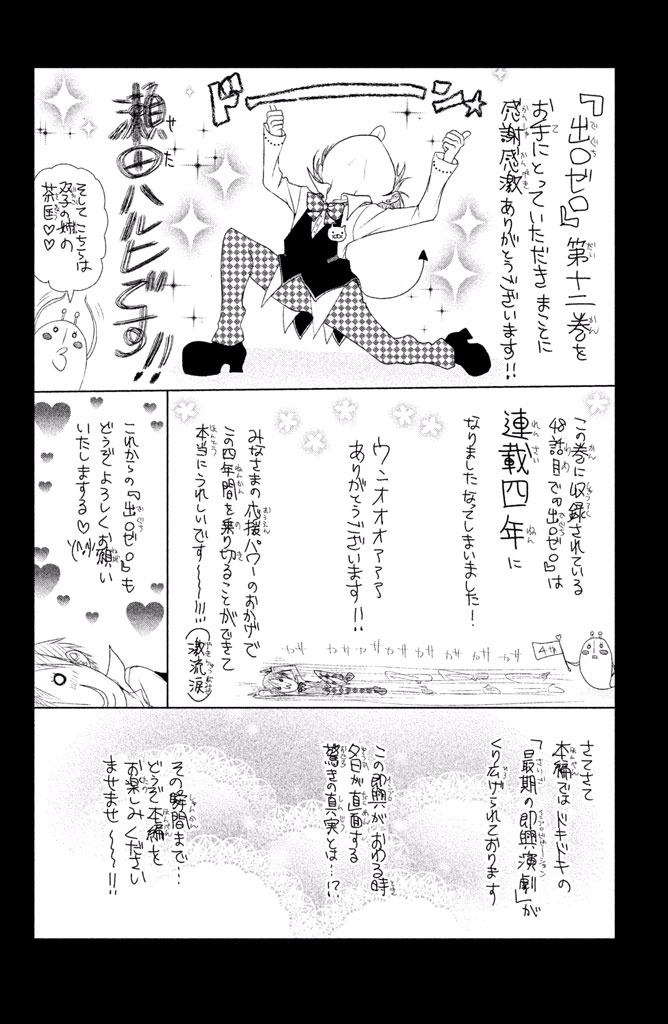 『出口ゼロ』第十二巻を
お手にとっていただきまことに
感謝感激ありがとうございます!!
ドーーン☆
瀬田ハルヒです!!
そしてこちらは
双子の姉の
茶匡♡♡
この巻に収録されている
48話目での『出口ゼロ』は
連載四年に
なりましたなってしまいました!
ウニオオオァァァ
ありがとうございます!!
みなさまの応援パワーのおかげで
この四年間を乗り切ることができて
本当にうれしいです〜〜〜!!!
(激流涙)
カサ カサ カサ カサ カサ カサ カサ
これからの『出口ゼロ』も
どうぞよろしくお願い
いたしまする♡
さてさて
本編ではドキドキの
「最期の即興演劇」が
くり広げられております
この即興がおわる時
夕日が直面する
驚きの真実とは…!?
その瞬間まで…
どうぞ本編を
お楽しみください
ませませ〜〜〜!!